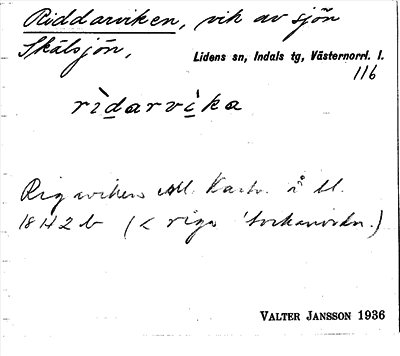 Riddarviken, vik av sjön
Skälsjön,
Lidens sn, Indals tg, Västernorrl. l.
116
rìdarvìka
Rigaviken All. Kartv. å bl.
18 H 2 b (< riga
VALTER JANSSON 1936